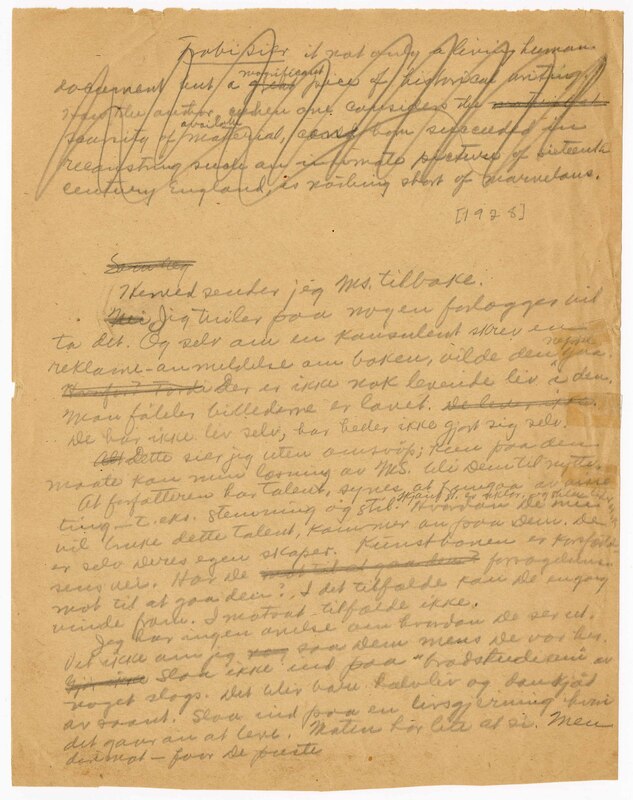 Frobisier it not only a living human
document but a great magnificent piece of historical writing.
How the author, when one considers the
scarcity of available material, can succeeded in
recanstring such an intimate picture of sixteenth
century England, is nothing short of marvelous.
[1928]
Herved sender jeg Ms. tilbake.
Nei Jeg tviler paa nogen forlægger vil
ta det. Og selv am en Kansulent skrev en
reklame-anmeldelse am baken, vilde den
Der er ikke nok levende liv i dem.
Man føler billederne er lavet. De lever ikke.
De har ikke liv selv, har heder ikke gjort sig selv.
Alt Dette sier jeg uten amsvøp; Kan paa den
maate kan min læsning av MS. bli Dem til nytte.
At forfatteren har talent, synes at fremgaa av
ting—t. eks. stemning og stil. Hvordan De
vil bruke dette talent, kammer an paa Dem. De
er selv Deres egen skaper. Kunstbanen er
vei. Har De
mot til at gaa den? I det tilfælde kan De engang
vinde fram. I matsat tilfælde ikke.
Jeg har ingen anelse am hvordan De ser ut.
Vet ikke am jeg saa Dem mens De var her.
Slaa ikke ind paa "bradstudium" av
noget slags. Det blir bare halvliv og
av saant. Slaa ind paa en livsgjerning hvori
det gaar an at leve. Maten bør bli at si. Men
—for De